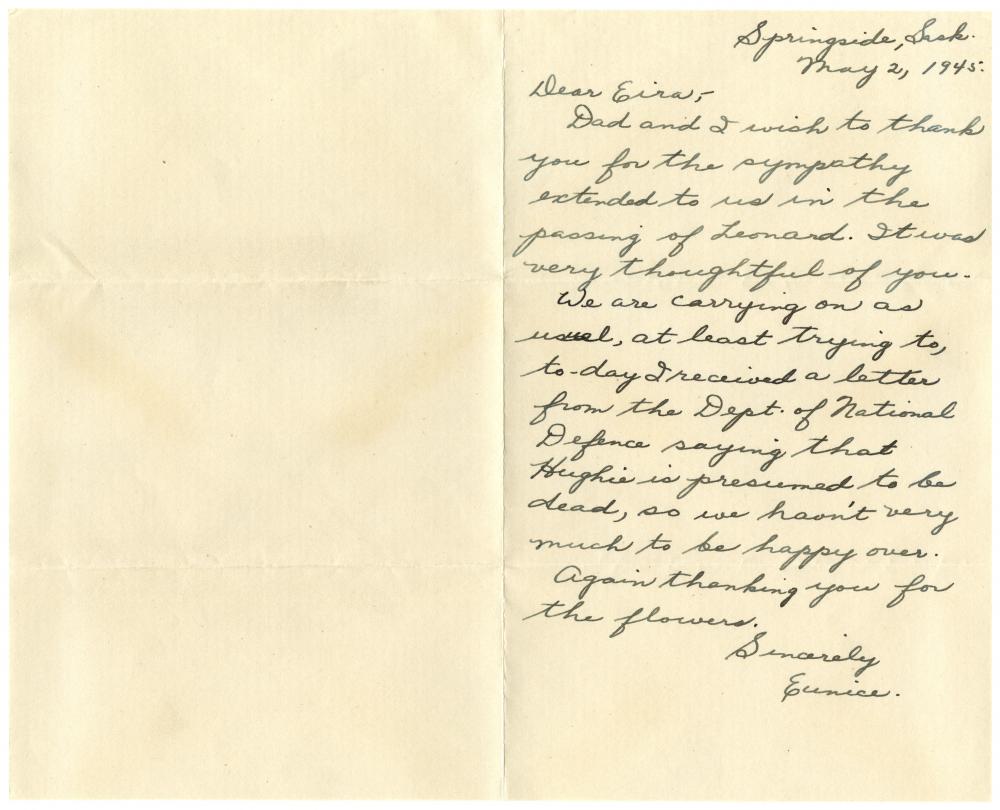 Springside, Sask.
May 2, 1945.
Dear Eira,-
Dad and I wish to thank
you for the sympathy
extended to us in the
passing of Leonard. It was
very thoughtful of you.
We are carrying on as
usual, at least trying to,
to-day I received a letter
from the Dept. of National
Defence saying that
Hughie is presumed to be
dead, so we havn't very
much to be happy over.
Again thanking you for
the flowers.
Sincerely
Eunice.